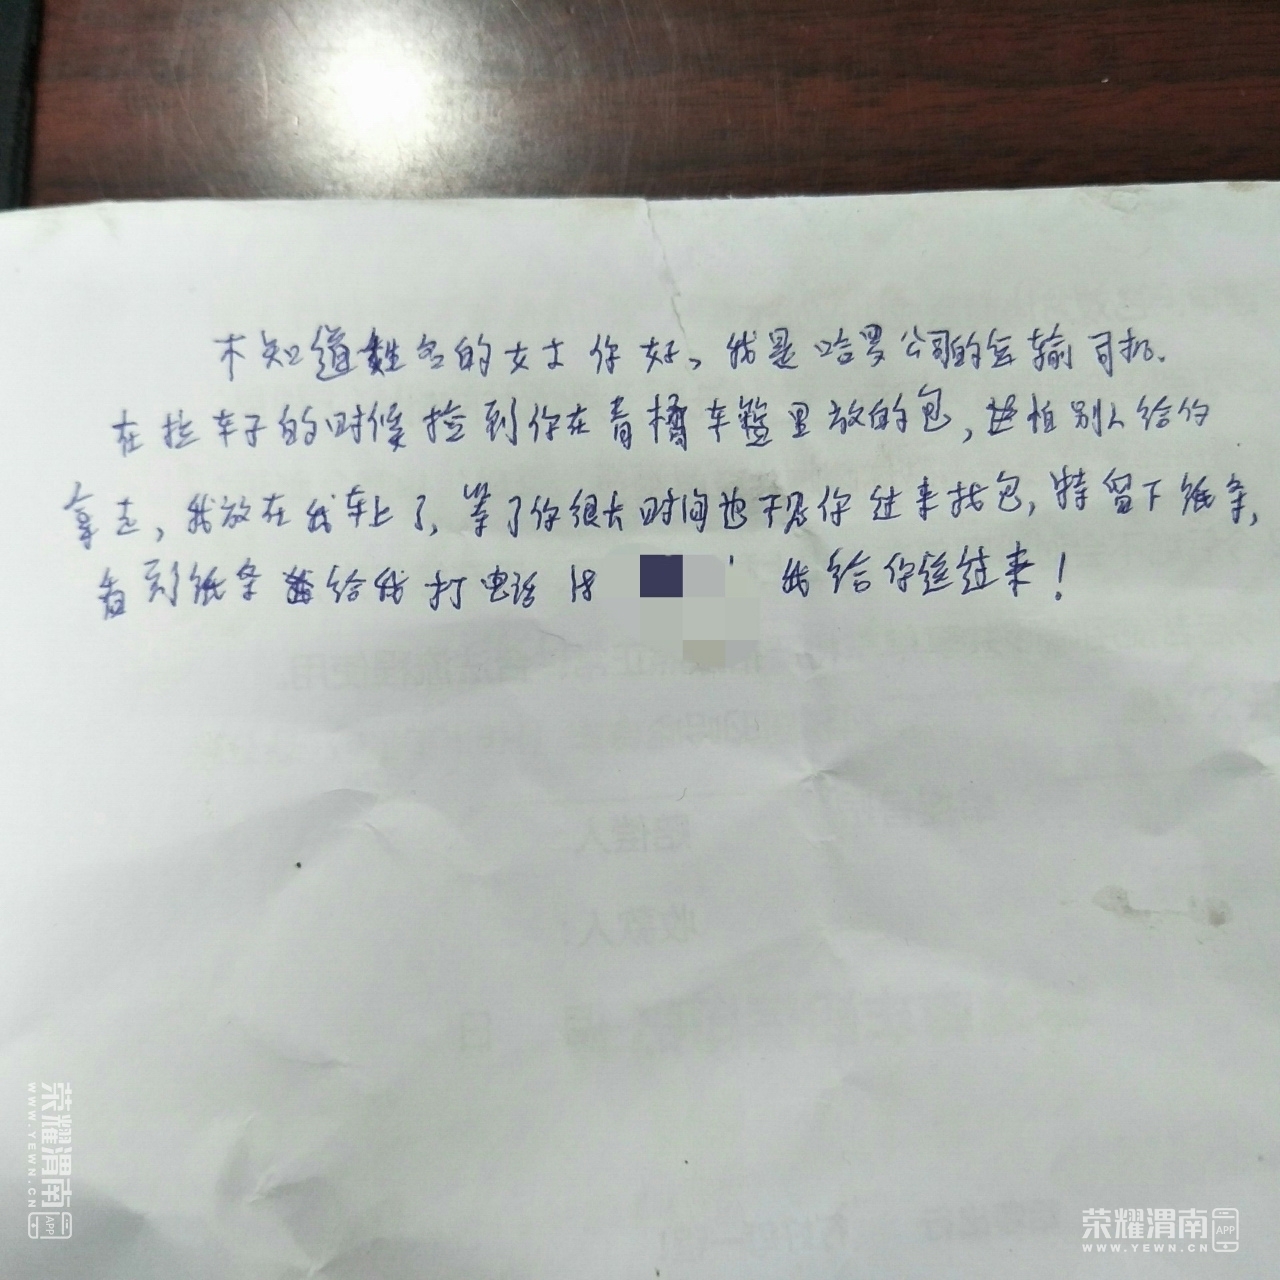 不知道姓名的女士你好，我是哈罗公司的运输司机.
在拉车子的时候捡到你在青橘车篮里放的包，我怕别人给你
拿走，我放在我车上了，等了你很长时间也不见你过来找包，特留下纸条，
看到纸条给我打电话 18 我给你送过来！
赔偿人:
收款人:
荣耀渭南 APP
WWW.YEWN.CN
荣耀渭南 APP
WWW.YEWN.CN